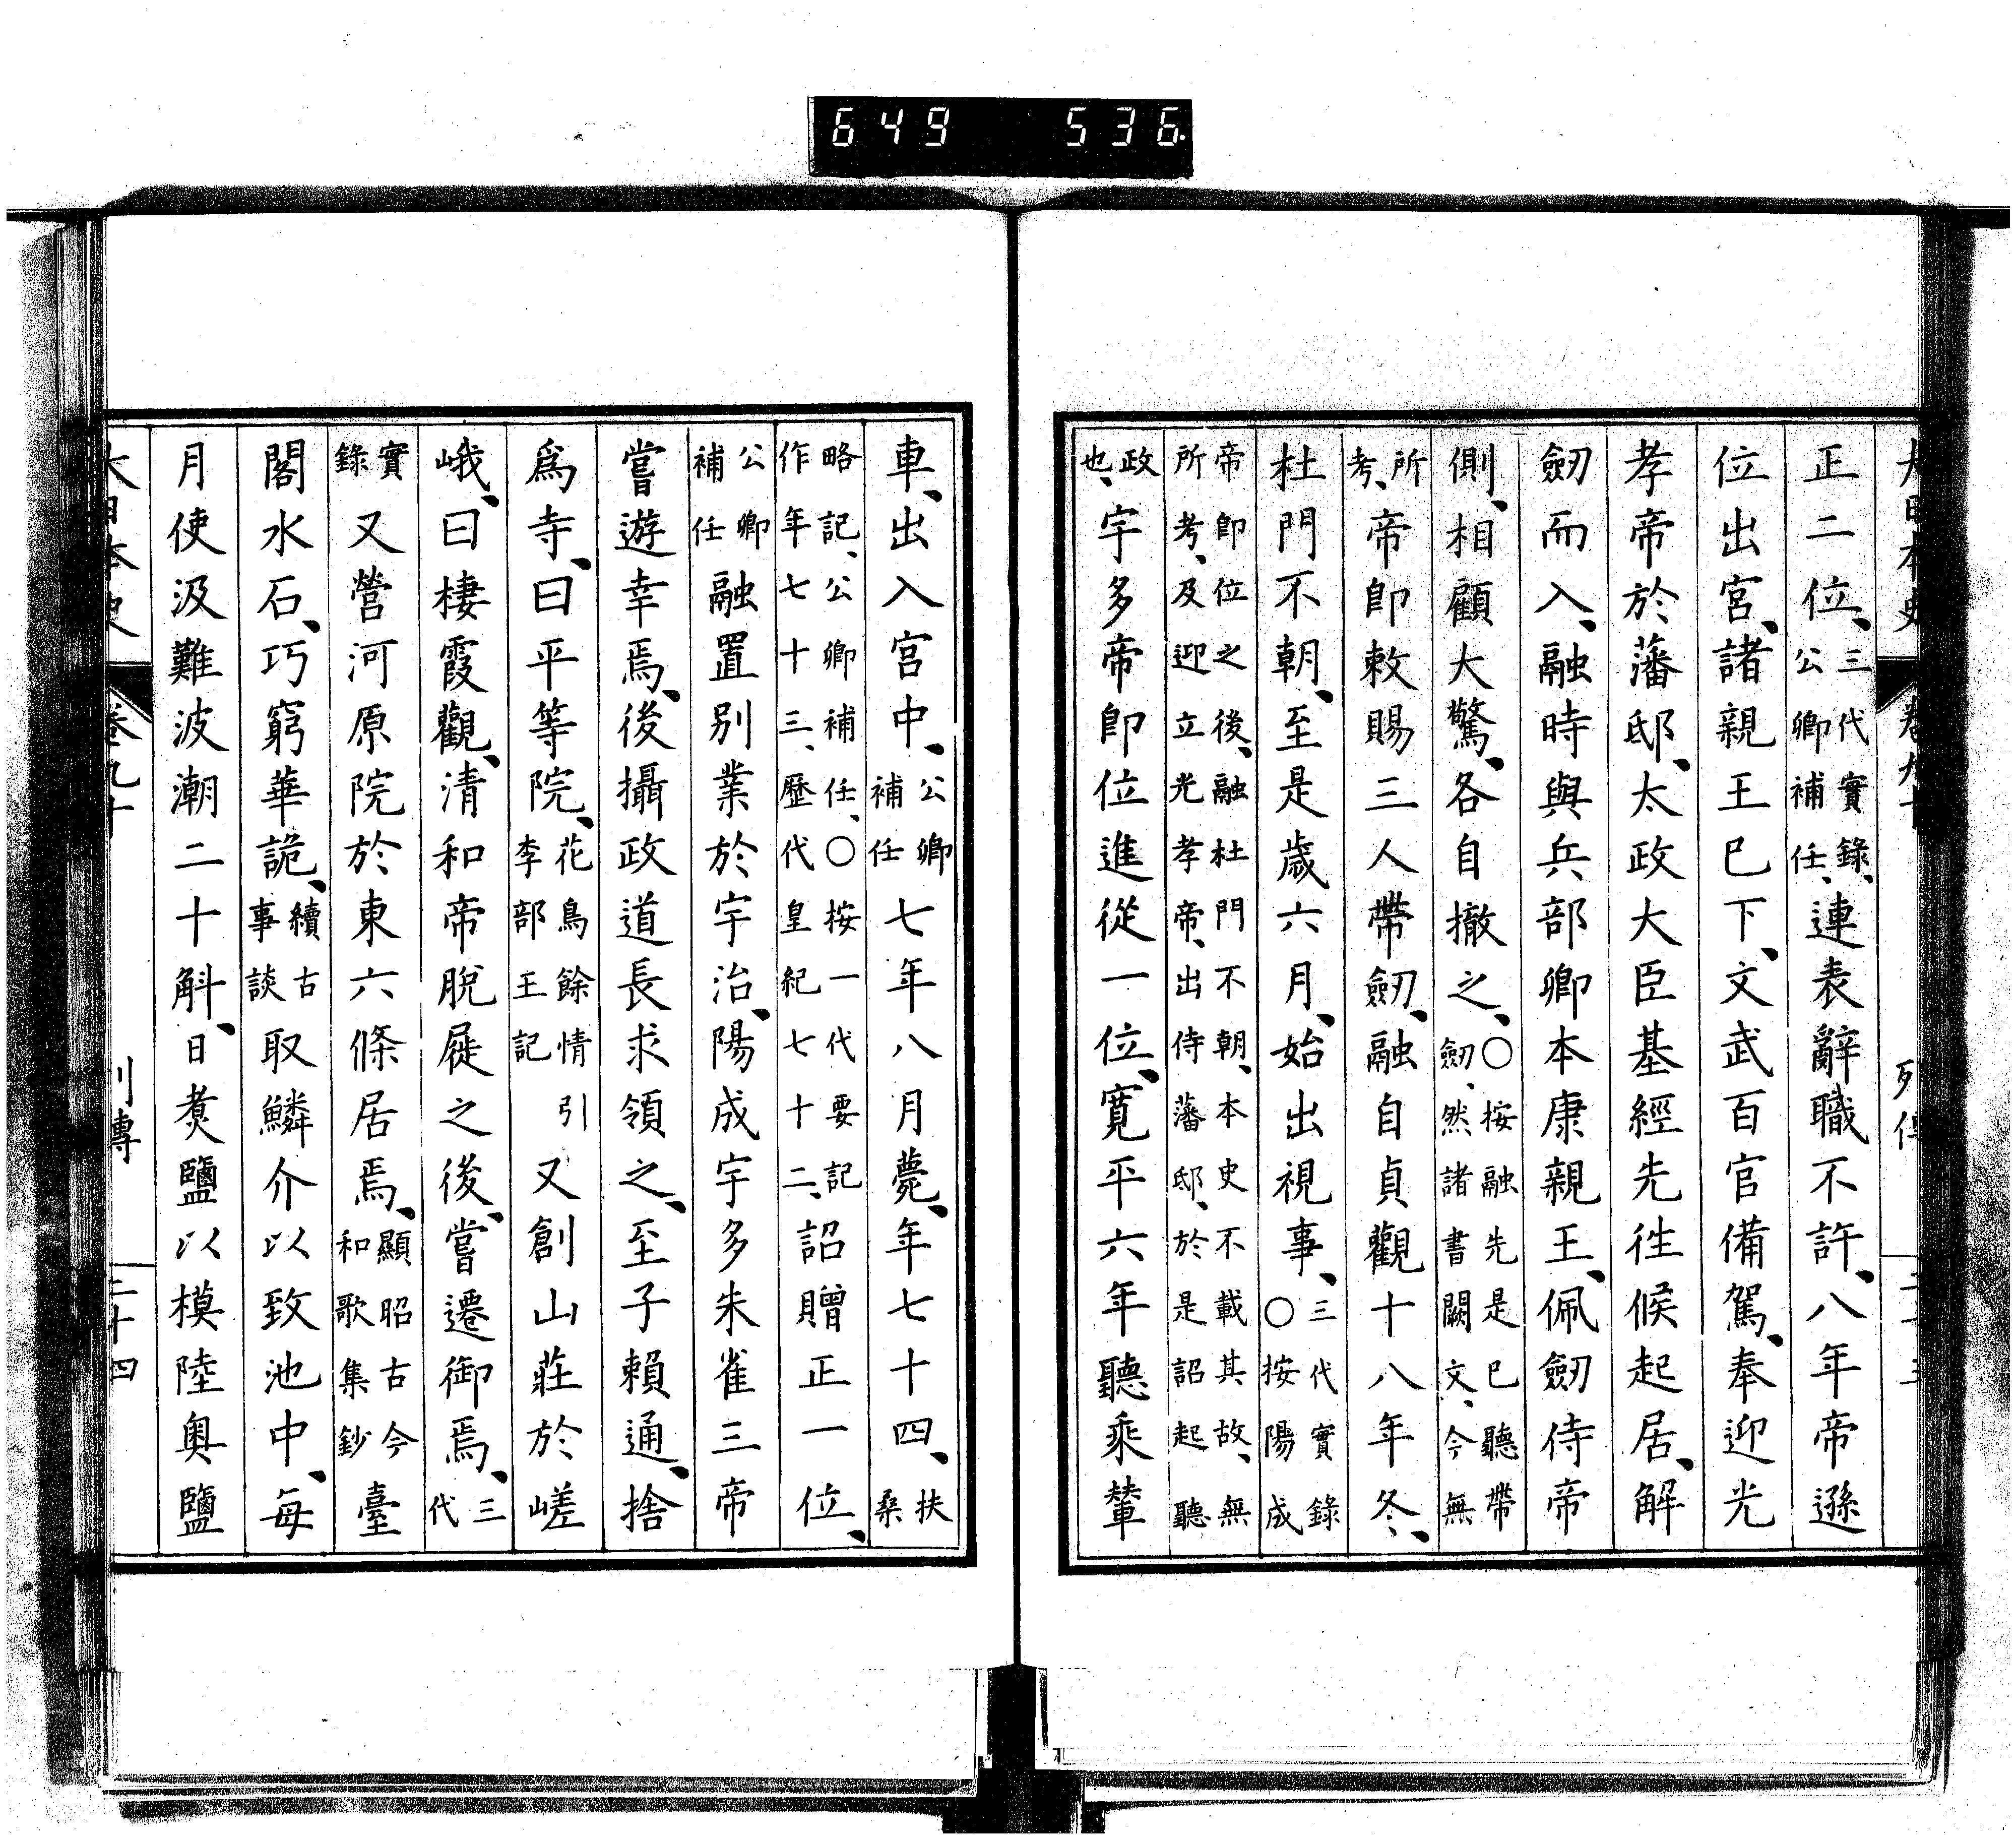 649 536.
正二位、三代實錄、公卿補任、連表辭職不許、八年帝遜
位出宮、諸親王已下、文武百官備駕、奉迎光
孝帝於藩邸、太政大臣基經先往候起居、解
劒而入、融時與兵部卿本康親王、佩劒侍帝
側、相顧大驚、各自撤之、○按融先是已聽帶劒、然諸書闕文、今無
所考、帝卽敕賜三人帶劒、融自貞觀十八年冬、
杜門不朝、至是歲六月、始出視事、三代實錄○按陽成
帝卽位之後、融杜門不朝、本史不載其故、無所考、及迎立光孝帝、出侍藩邸、於是詔起聽
政也、宇多帝卽位進從一位、寬平六年聽乘輦
車、出入宮中、公卿補任七年八月薨、年七十四、扶桑
略記、公卿補任、○按一代要記作年七十三、歷代皇紀七十二、詔贈正一位、
公卿補任融置別業於宇治、陽成宇多朱雀三帝
嘗遊幸焉、後攝政道長求領之、至子賴通、捨
爲寺、曰平等院、花鳥餘情引李部王記又創山莊於嵯
峨、曰棲霞觀、清和帝脫屣之後、嘗遷御焉、三代
實錄又營河原院於東六條居焉、顯昭古今和歌集鈔臺
閣水石、巧窮華詭、續古事談取鱗介以致池中、每
月使汲難波潮二十斛、日煑鹽以模陸奧鹽
大日本史 卷九十 列傳 二十四